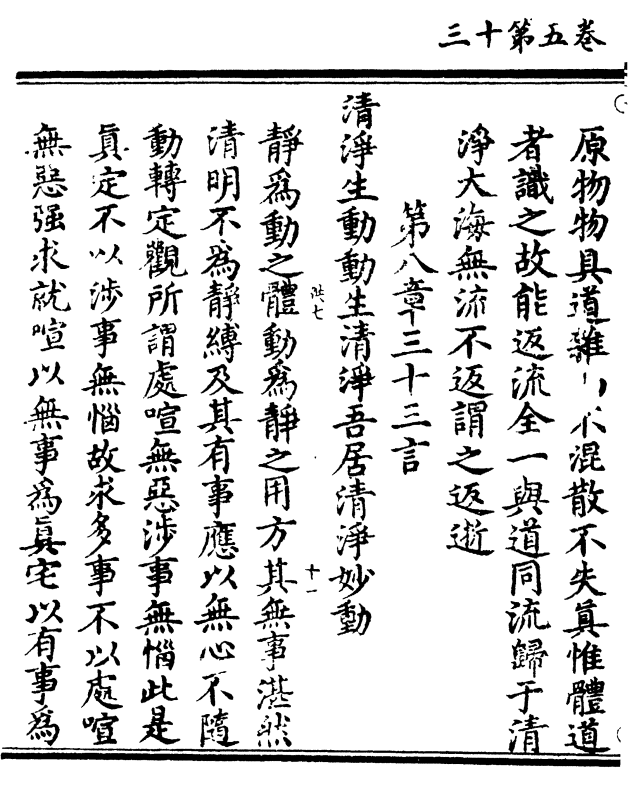 三十第五卷
原物物具道雖 不混散不失眞惟體道
者識之故能返流全一與道同流歸于清
淨大海無流不返謂之返逝
第八章三十三言
清淨生動動生清淨吾居清淨妙動
靜爲動之體動爲靜之用方其無事湛然
洪七
十一
清明不爲靜縛及其有事應以無心不隨
動轉定觀所謂處喧無惡涉事無惱此是
眞定不以涉事無惱故求多事不以處喧
無惡强求就喧以無事爲眞宅以有事爲